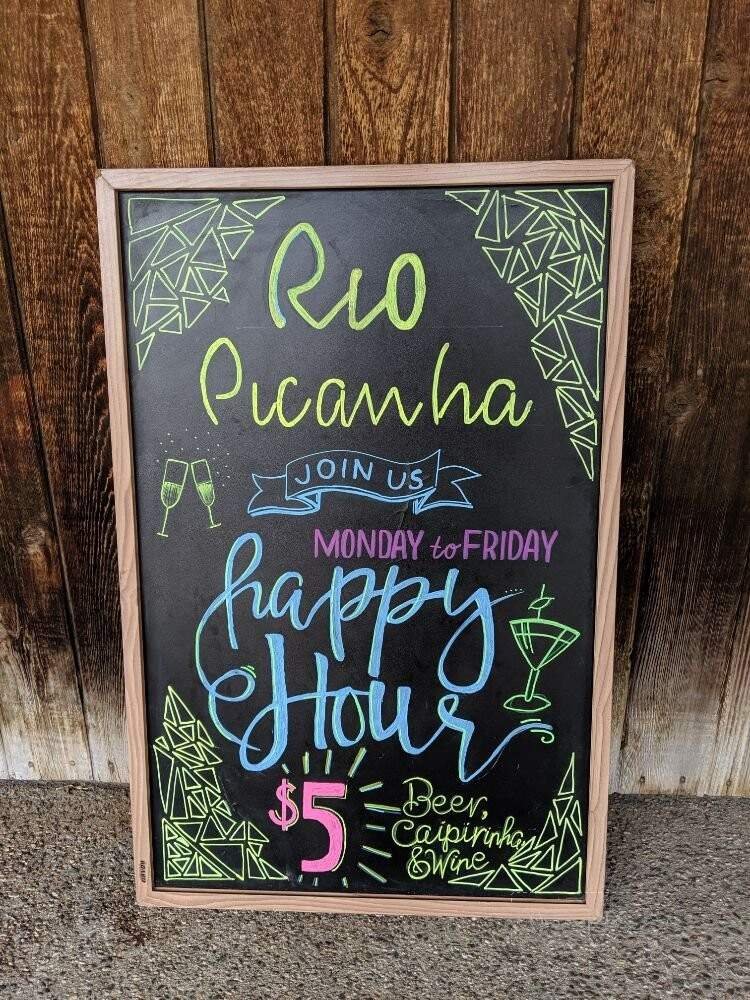 Rio
Picanha
JOIN US
MONDAY to FRIDAY
happy
Hour
$5
Beer,
Caipirinha
& Wine